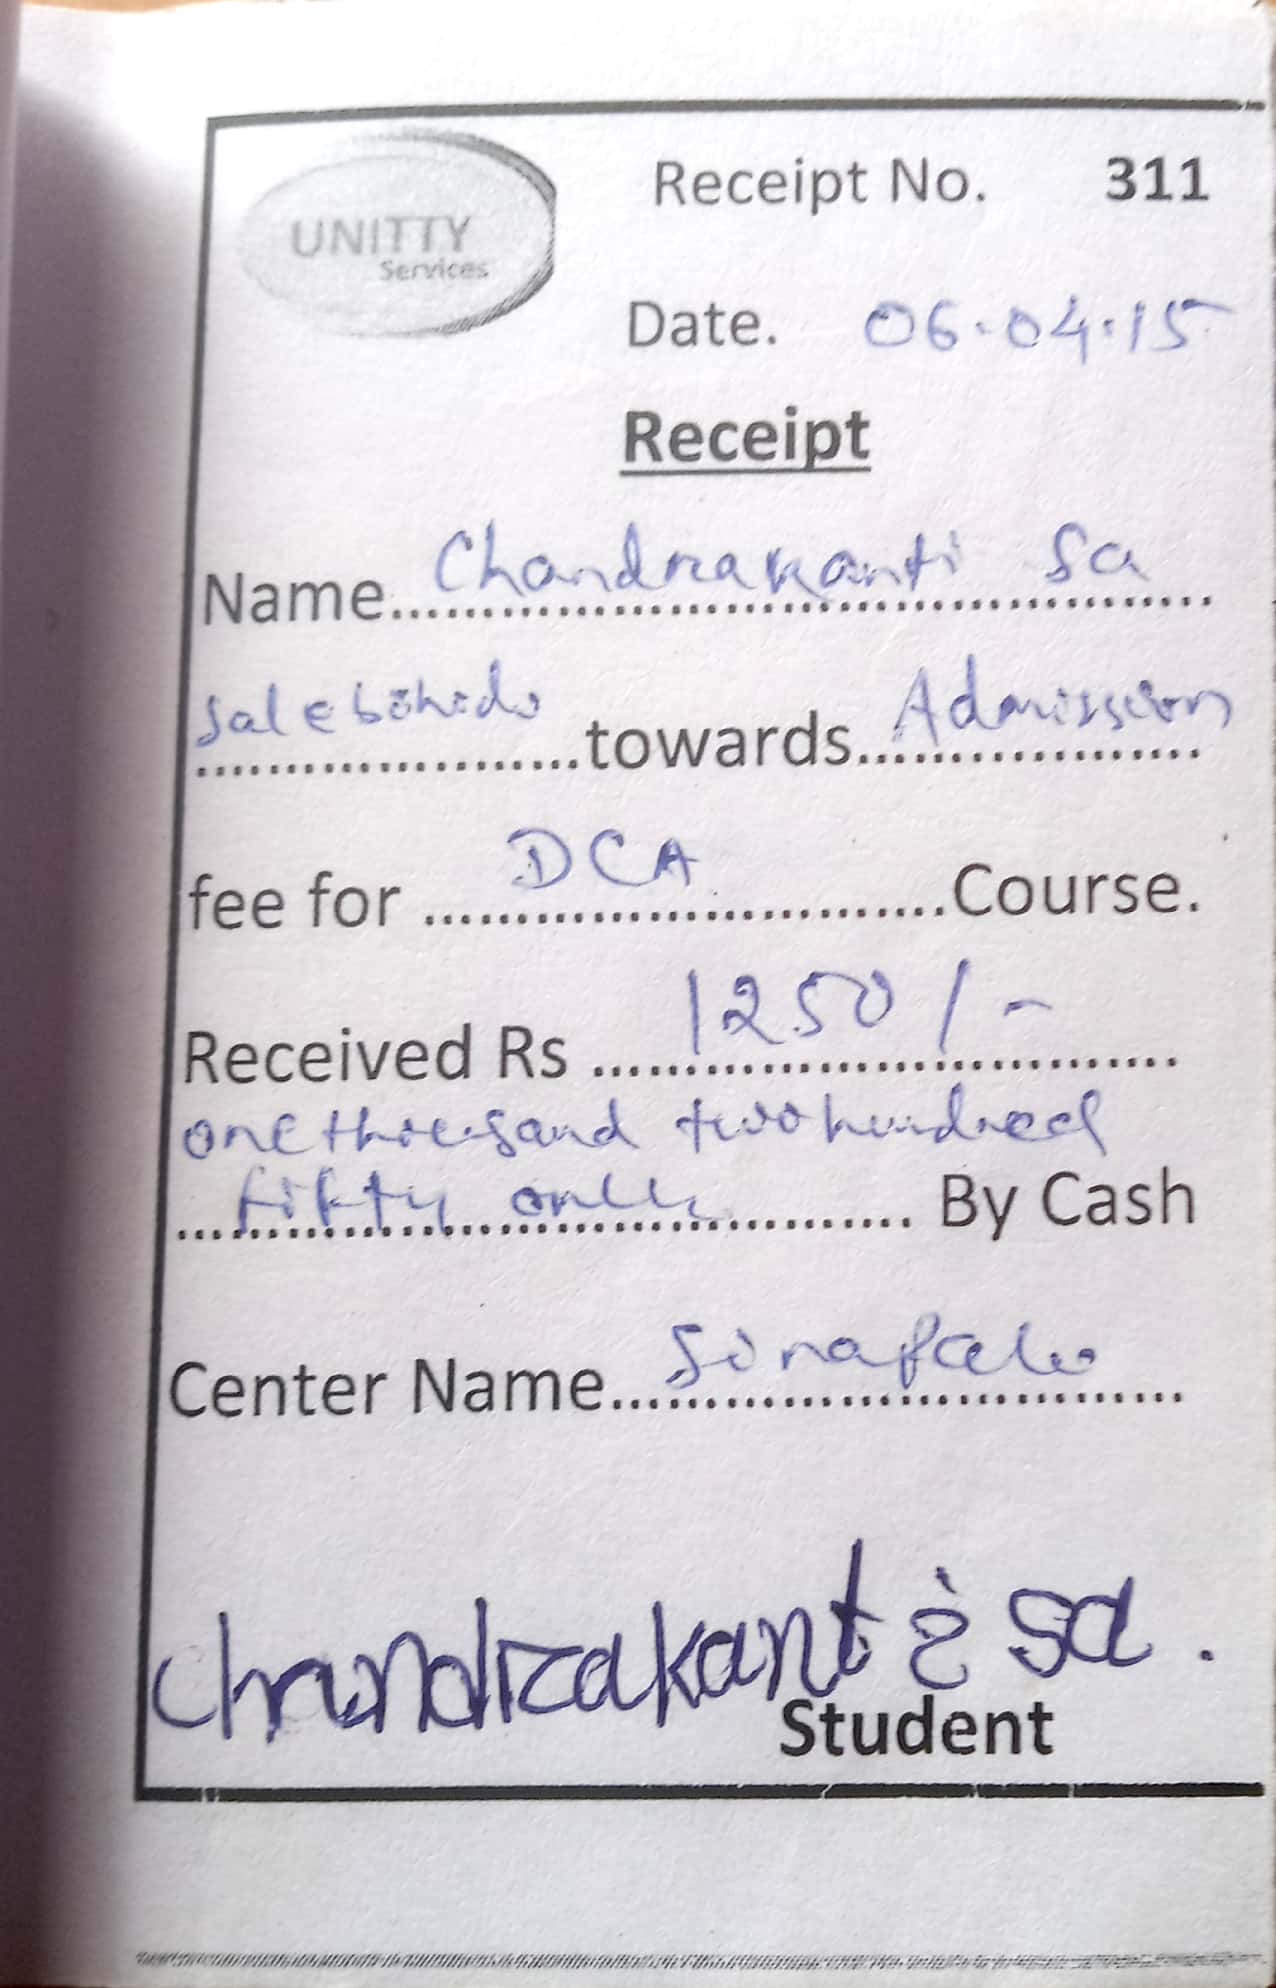 UNITTY
Services
Receipt No. 311
Date. 06.04.15
Receipt
Name Chandrakanti Sa
towards Admission
fee for DCA Course.
Received Rs 1250/-
one thousand two hundred
fifty only By Cash
Center Name
Chandrakanti sa.
Student